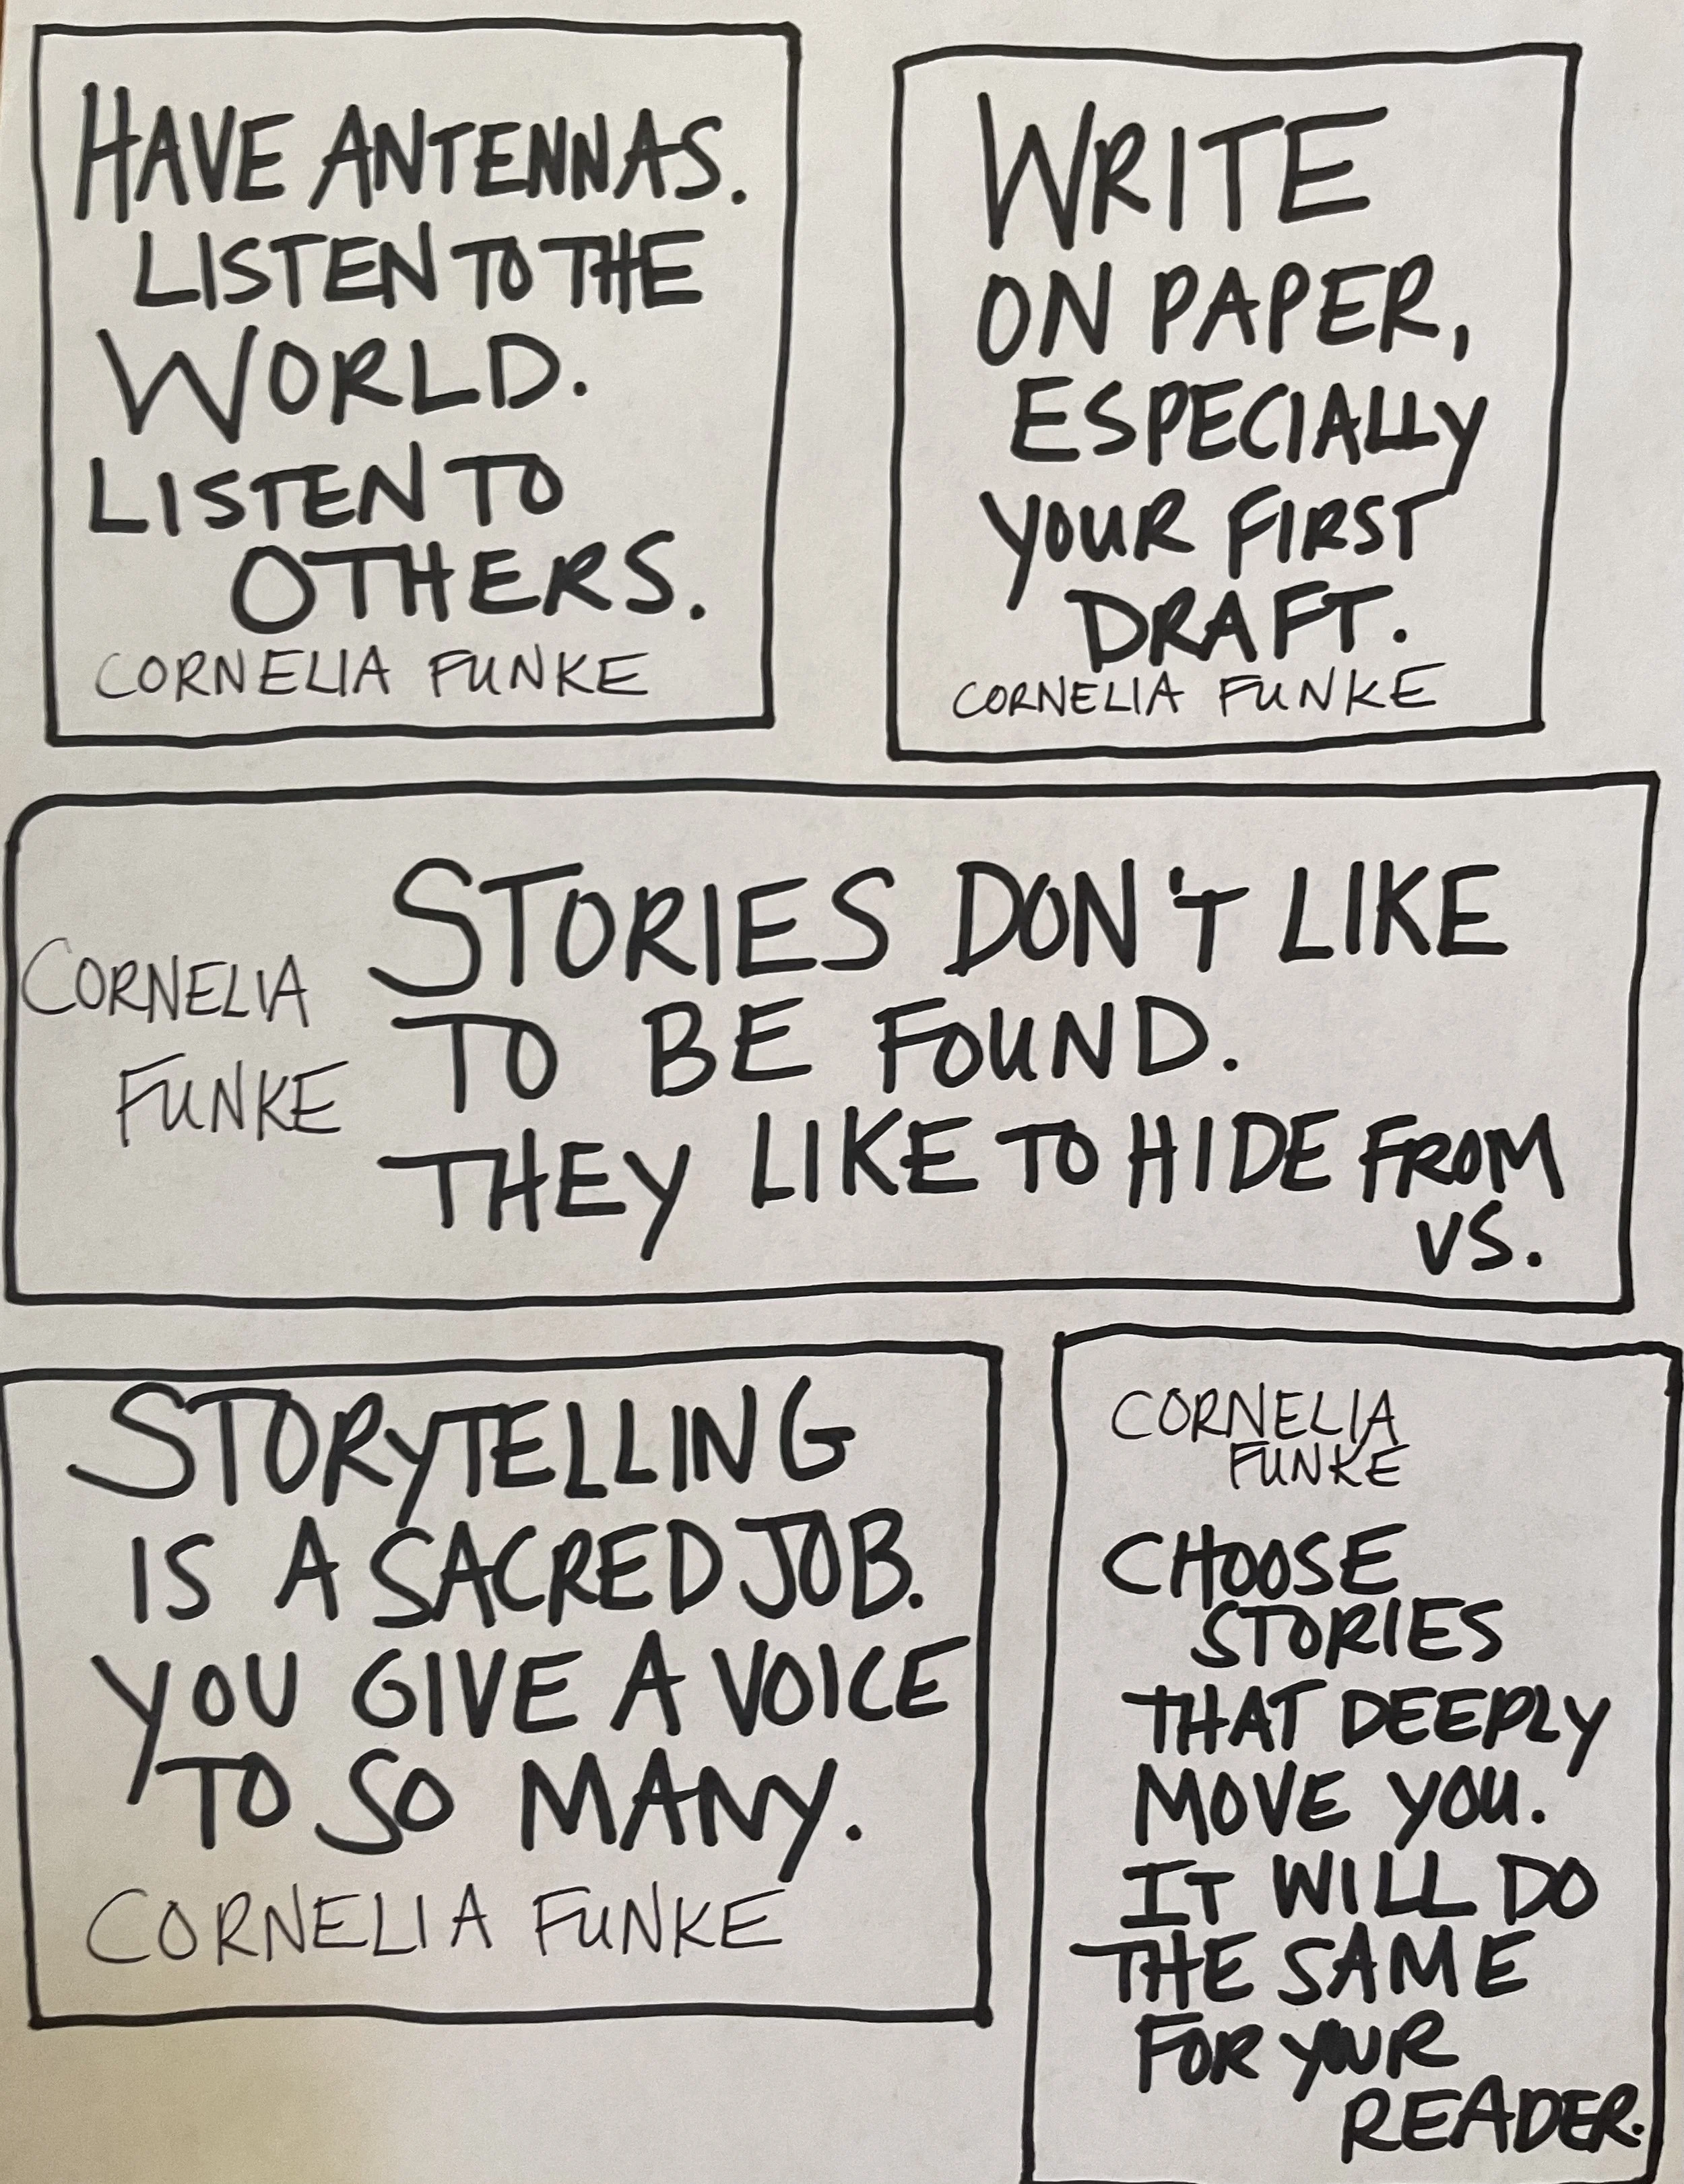 HAVE ANTENNAS.
LISTEN TO THE
WORLD.
LISTEN TO
OTHERS.
CORNELIA FUNKE
WRITE
ON PAPER,
ESPECIALLY
YOUR FIRST
DRAFT.
CORNELIA FUNKE
CORNELIA
FUNKE
STORIES DON'T LIKE
TO BE FOUND.
THEY LIKE TO HIDE FROM
US.
STORYTELLING
IS A SACRED JOB.
YOU GIVE A VOICE
TO SO MANY.
CORNELIA FUNKE
CORNELIA
FUNKE
CHOOSE
STORIES
THAT DEEPLY
MOVE YOU.
IT WILL DO
THE SAME
FOR YOUR
READER.